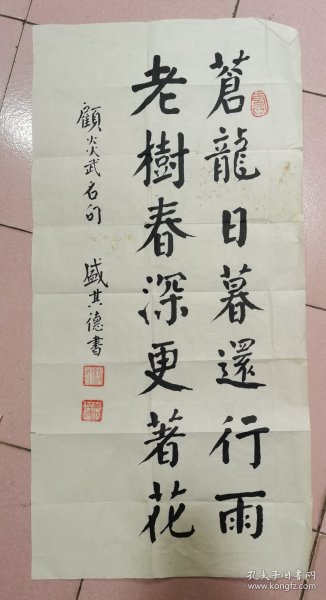 蒼龍日暮還行雨
老樹春深更著花
顧炎武名句
盛其德書
孔夫子旧书网